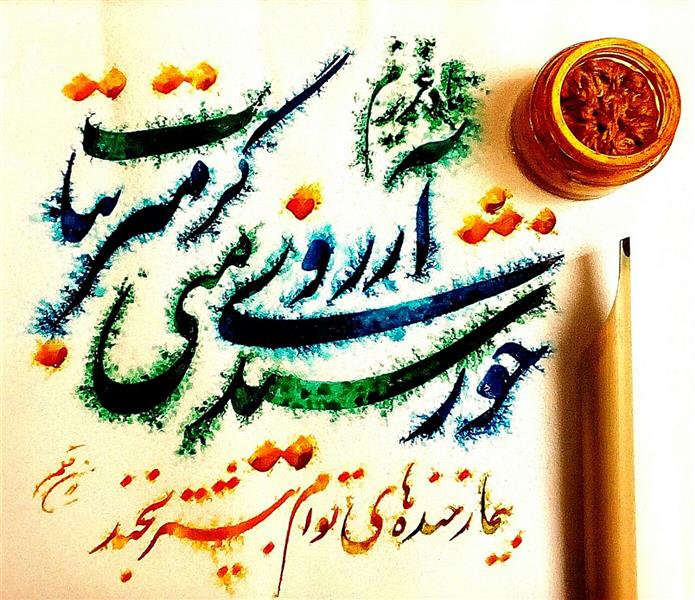 خورشید آرزوی منی گرم تر بتاب
بیمار خنده های توام بیشتر بخند